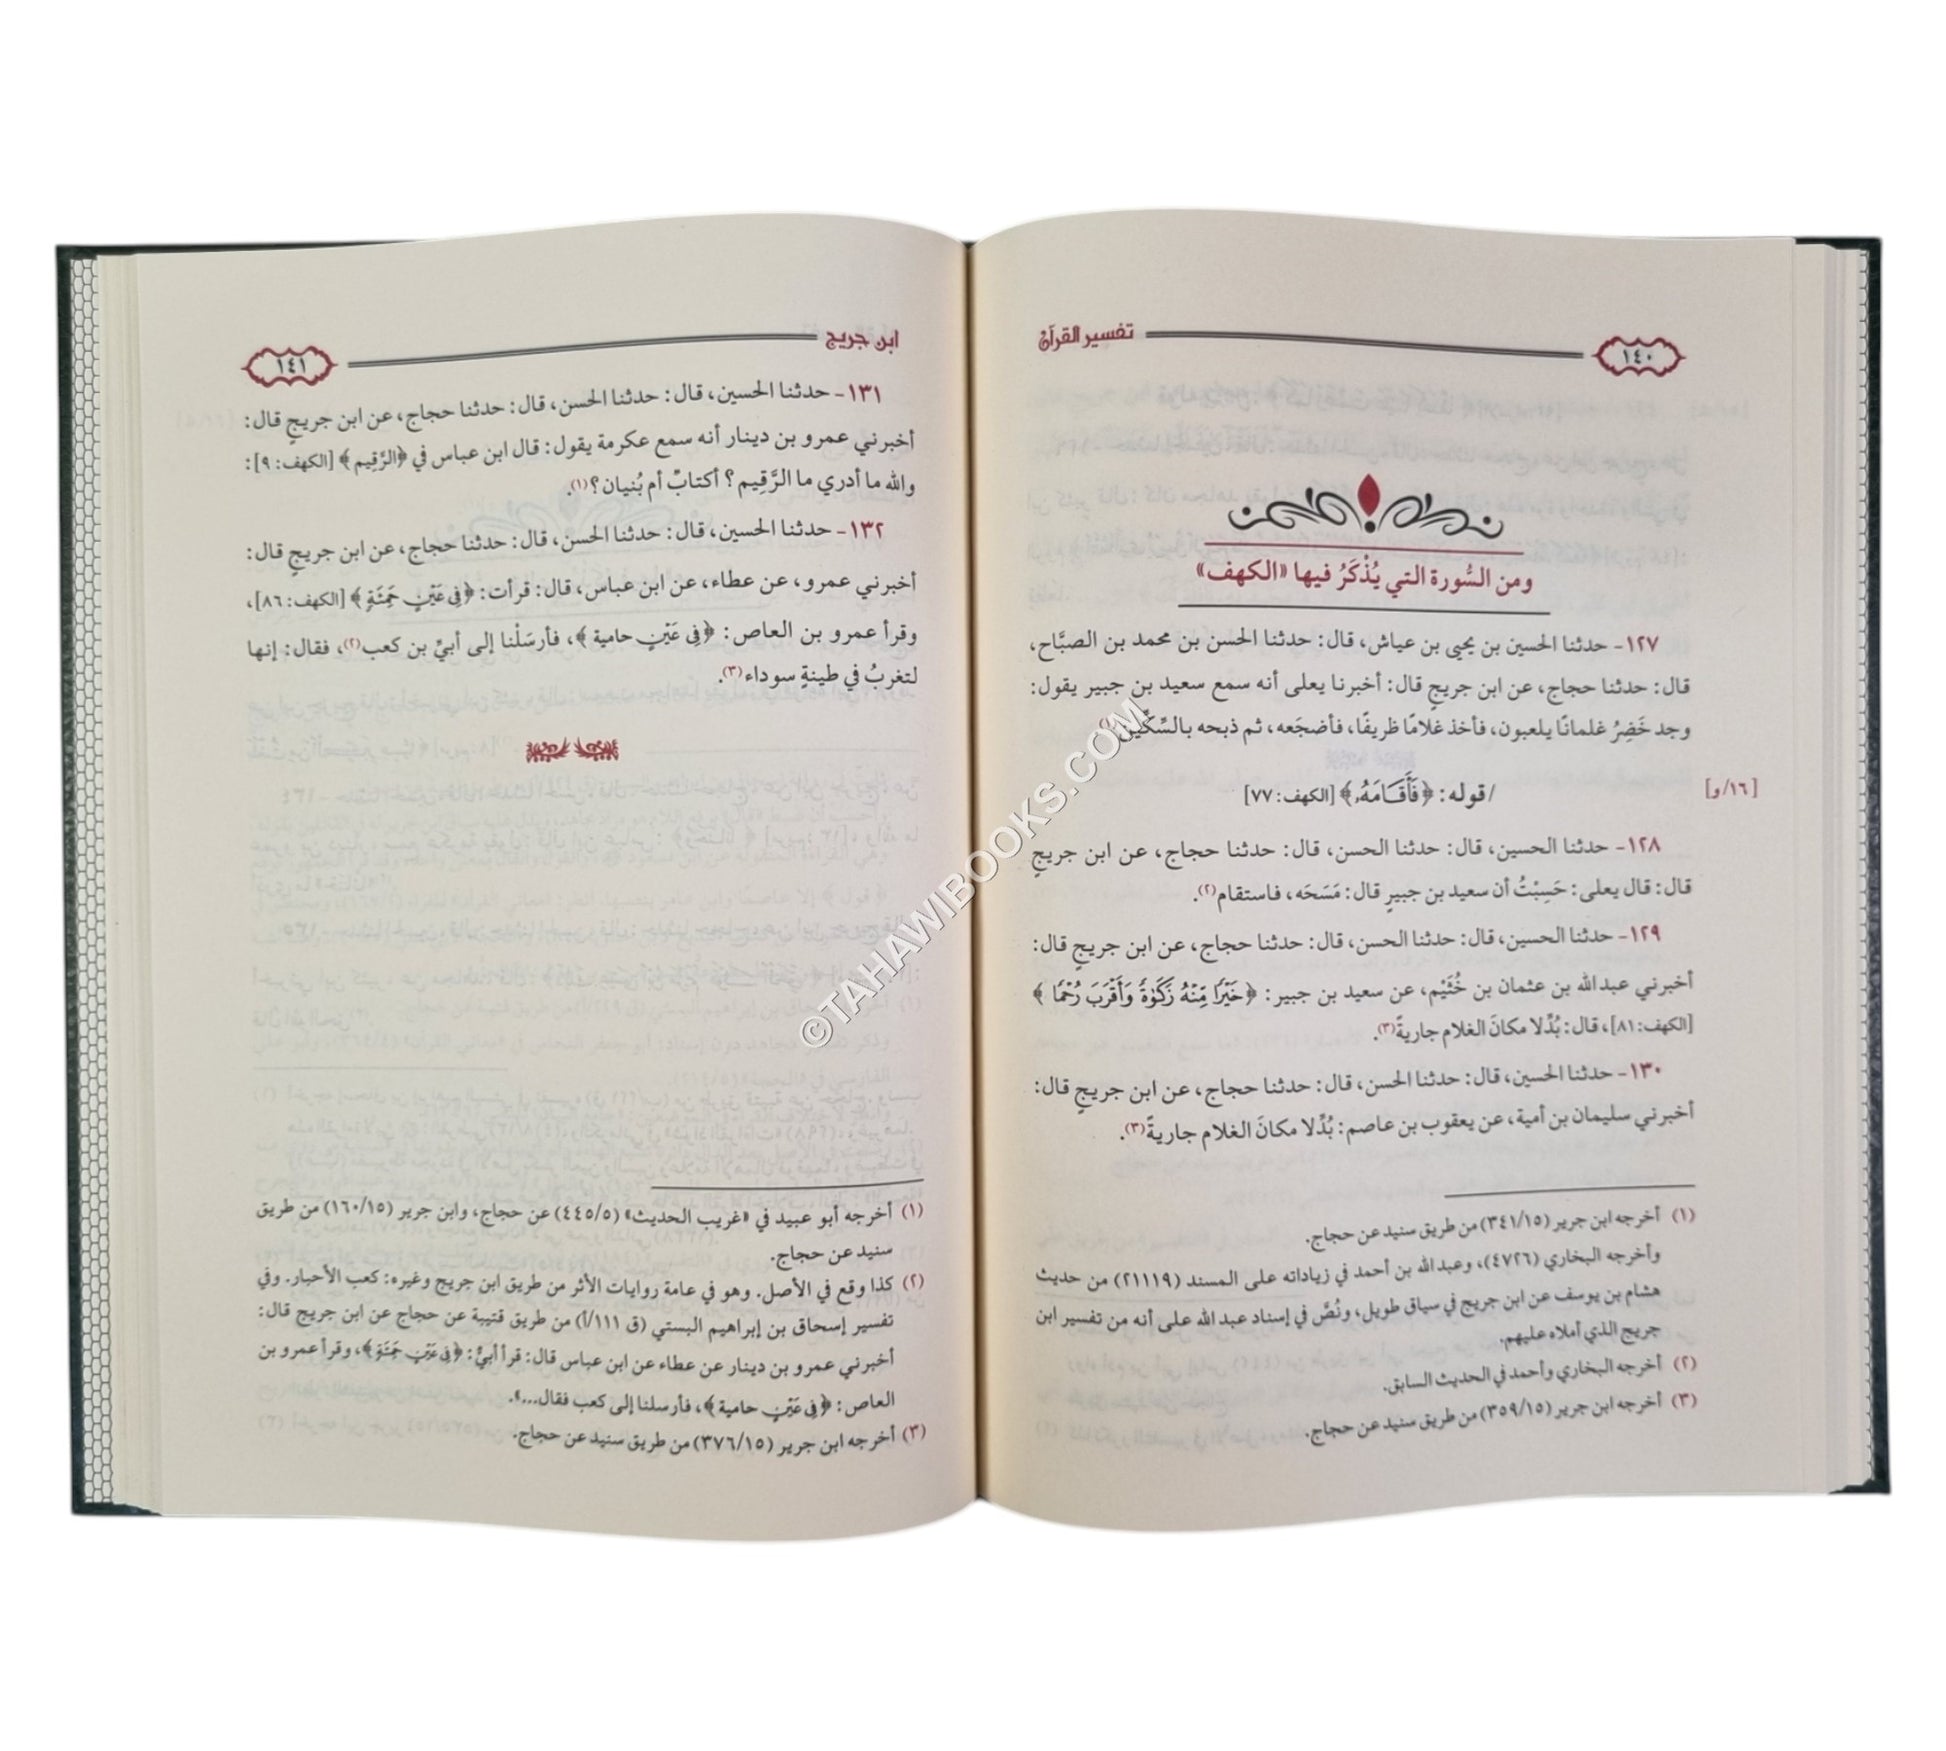 ١٤٠
تفسير القرآن
ومن السُّورة التي يُذْكَرُ فيها «الكهف»
١٢٧- حدثنا الحسين بن يحيى بن عياش، قال: حدثنا الحسن بن محمد بن الصبَّاح،
قال: حدثنا حجاج، عن ابن جريجٍ قال: أخبرنا يعلى أنه سمع سعيد بن جبير يقول:
وجد خَضِرُ غلمانًا يلعبون، فأخذ غلامًا ظريفًا، فأضجَعه، ثم ذبحه بالسِّكِّين(١).
[١٦/و]
/قوله: ﴿فَأَقَامَهُۥ﴾ [الكهف: ٧٧]
١٢٨- حدثنا الحسين، قال: حدثنا الحسن، قال: حدثنا حجاج، عن ابن جريجٍ
قال: قال يعلى: حَسِبْتُ أن سعيد بن جبيرٍ قال: مَسَحَه، فاستقام(٢).
١٢٩- حدثنا الحسين، قال: حدثنا الحسن، قال: حدثنا حجاج، عن ابن جريجٍ قال:
أخبرني عبدالله بن عثمان بن خُثَيْم، عن سعيد بن جبير: ﴿خَيْرًا مِّنْهُ زَكَوٰةً وَأَقْرَبَ رُحْمًا﴾
[الكهف: ٨١]، قال: بُدِّلا مكانَ الغلام جاريةً(٣).
١٣٠- حدثنا الحسين، قال: حدثنا الحسن، قال: حدثنا حجاج، عن ابن جريجٍ قال:
أخبرني سليمان بن أمية، عن يعقوب بن عاصم: بُدِّلا مكانَ الغلام جاريةً(٣).
(١) أخرجه ابن جرير (٣٤١/١٥) من طريق سنيد عن حجاج.
وأخرجه البخاري (٤٧٢٦)، وعبدالله بن أحمد في زياداته على المسند (٢١١١٩) من حديث
هشام بن يوسف عن ابن جريج في سياق طويل، ونُصَّ في إسناد عبد الله على أنه من تفسير ابن
جريج الذي أملاه عليهم.
(٢) أخرجه البخاري وأحمد في الحديث السابق.
(٣) أخرجه ابن جرير (٣٥٩/١٥) من طريق سنيد عن حجاج.
ابن جريج
١٤١
١٣١- حدثنا الحسين، قال: حدثنا الحسن، قال: حدثنا حجاج، عن ابن جريجٍ قال:
أخبرني عمرو بن دينار أنه سمع عكرمة يقول: قال ابن عباس في ﴿الرَّقِيم﴾ [الكهف: ٩]:
والله ما أدري ما الرَّقِيم؟ أكتابٌ أم بُنيان؟(١).
١٣٢- حدثنا الحسين، قال: حدثنا الحسن، قال: حدثنا حجاج، عن ابن جريجٍ قال:
أخبرني عمرو، عن عطاء، عن ابن عباس، قال: قرأت: ﴿فِى عَيْنٍ حَمِئَةٍ﴾ [الكهف: ٨٦]،
وقرأ عمرو بن العاص: ﴿فِى عَيْنٍ حامية﴾، فأرسَلْنا إلى أبيِّ بن كعب(٢)، فقال: إنها
لتغربُ في طينةٍ سوداء(٣).
(١) أخرجه أبو عبيد في «غريب الحديث» (٤٤٥/٥) عن حجاج، وابن جرير (١٦٠/١٥) من طريق
سنيد عن حجاج.
(٢) كذا وقع في الأصل. وهو في عامة روايات الأثر من طريق ابن جريج وغيره: كعب الأحبار. وفي
تفسير إسحاق بن إبراهيم البستي (ق ١١١/أ) من طريق قتيبة عن حجاج عن ابن جريج قال:
أخبرني عمرو بن دينار عن عطاء عن ابن عباس قال: قرأ أبيٌّ: ﴿فِى عَيْنٍ حَمِئَةٍ﴾، وقرأ عمرو بن
العاص: ﴿فِى عَيْنٍ حامية﴾، فأرسلنا إلى كعب فقال...».
(٣) أخرجه ابن جرير (٣٧٦/١٥) من طريق سنيد عن حجاج.
©TAHAWIBOOKS.COM